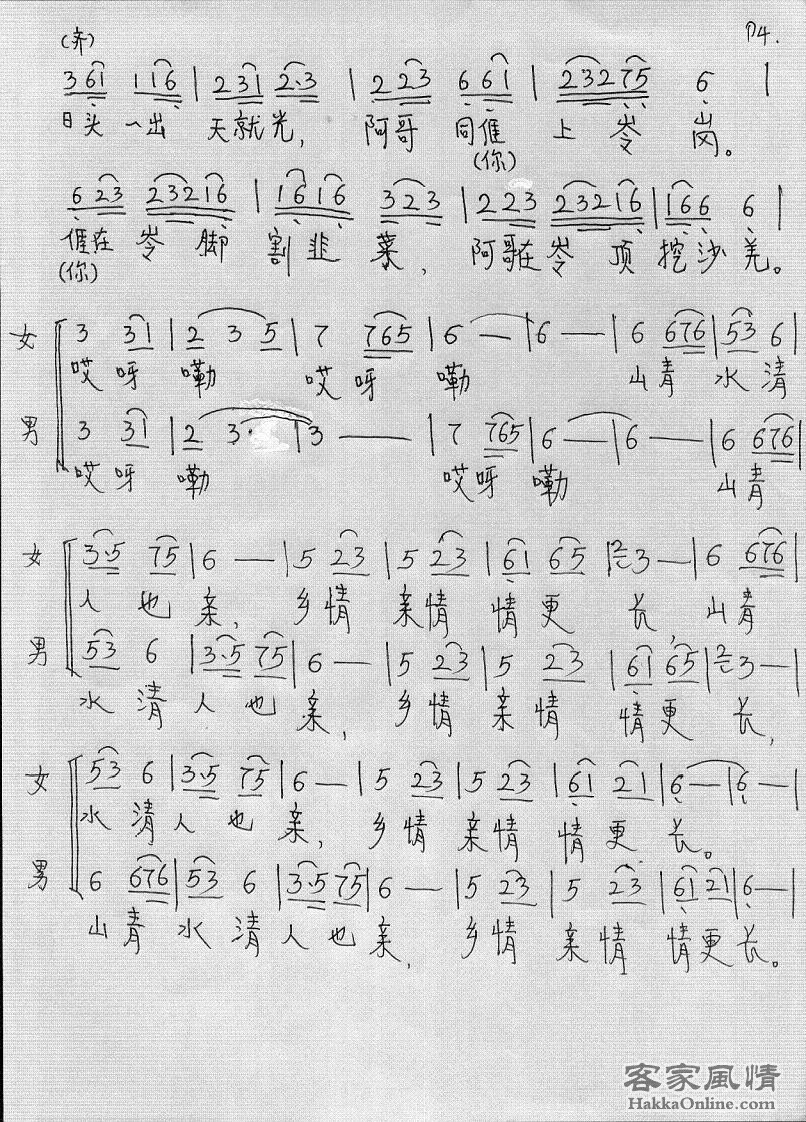 (齐) P4.
3 6 1 1 1 6 | 2 3 1 2·3 | 2 2 3 6 6 1 | 2 3 2 7 5 6 |
日头一出 天就光, 阿哥 同𠊎 上岺岗。
(你)
6 2 3 2 3 2 1 6 | 1 6 1 6 3 2 3 | 2 2 3 2 3 2 1 6 | 1 6 6 6 |
𠊎在岺脚 割韭菜, 阿哥在岺顶挖沙羌。
(你)
女 3 3 1 | 2 3 5 | 7 7 6 5 | 6 — | 6 — | 6 6 7 6 | 5 3 6 |
哎呀 嘞 哎呀 嘞 山青 水清
男 3 3 1 | 2 3· | 3 — | 7 7 6 5 | 6 — | 6 — | 6 6 7 6 |
哎呀 嘞 哎呀 嘞 山青
女 3·5 7 5 | 6 — | 5 2 3 | 5 2 3 | 6 1 6 5 | 2 3 — | 6 6 7 6 |
人也亲, 乡情 亲情 情更 长, 山青
男 5 3 6 | 3·5 7 5 | 6 — | 5 2 3 | 5 2 3 | 6 1 6 5 | 2 3 — |
水清人也亲, 乡情 亲情 情更 长,
女 5 3 6 | 3·5 7 5 | 6 — | 5 2 3 | 5 2 3 | 6 1 2 1 | 6 — | 6 — |
水清人也亲, 乡情 亲情 情更 长。
男 6 6 7 6 | 5 3 6 | 3·5 7 5 | 6 — | 5 2 3 | 5 2 3 | 6 1 2 1 | 6 — |
山青 水清人也亲, 乡情 亲情 情更长。
客家風情
HakkaOnline.com